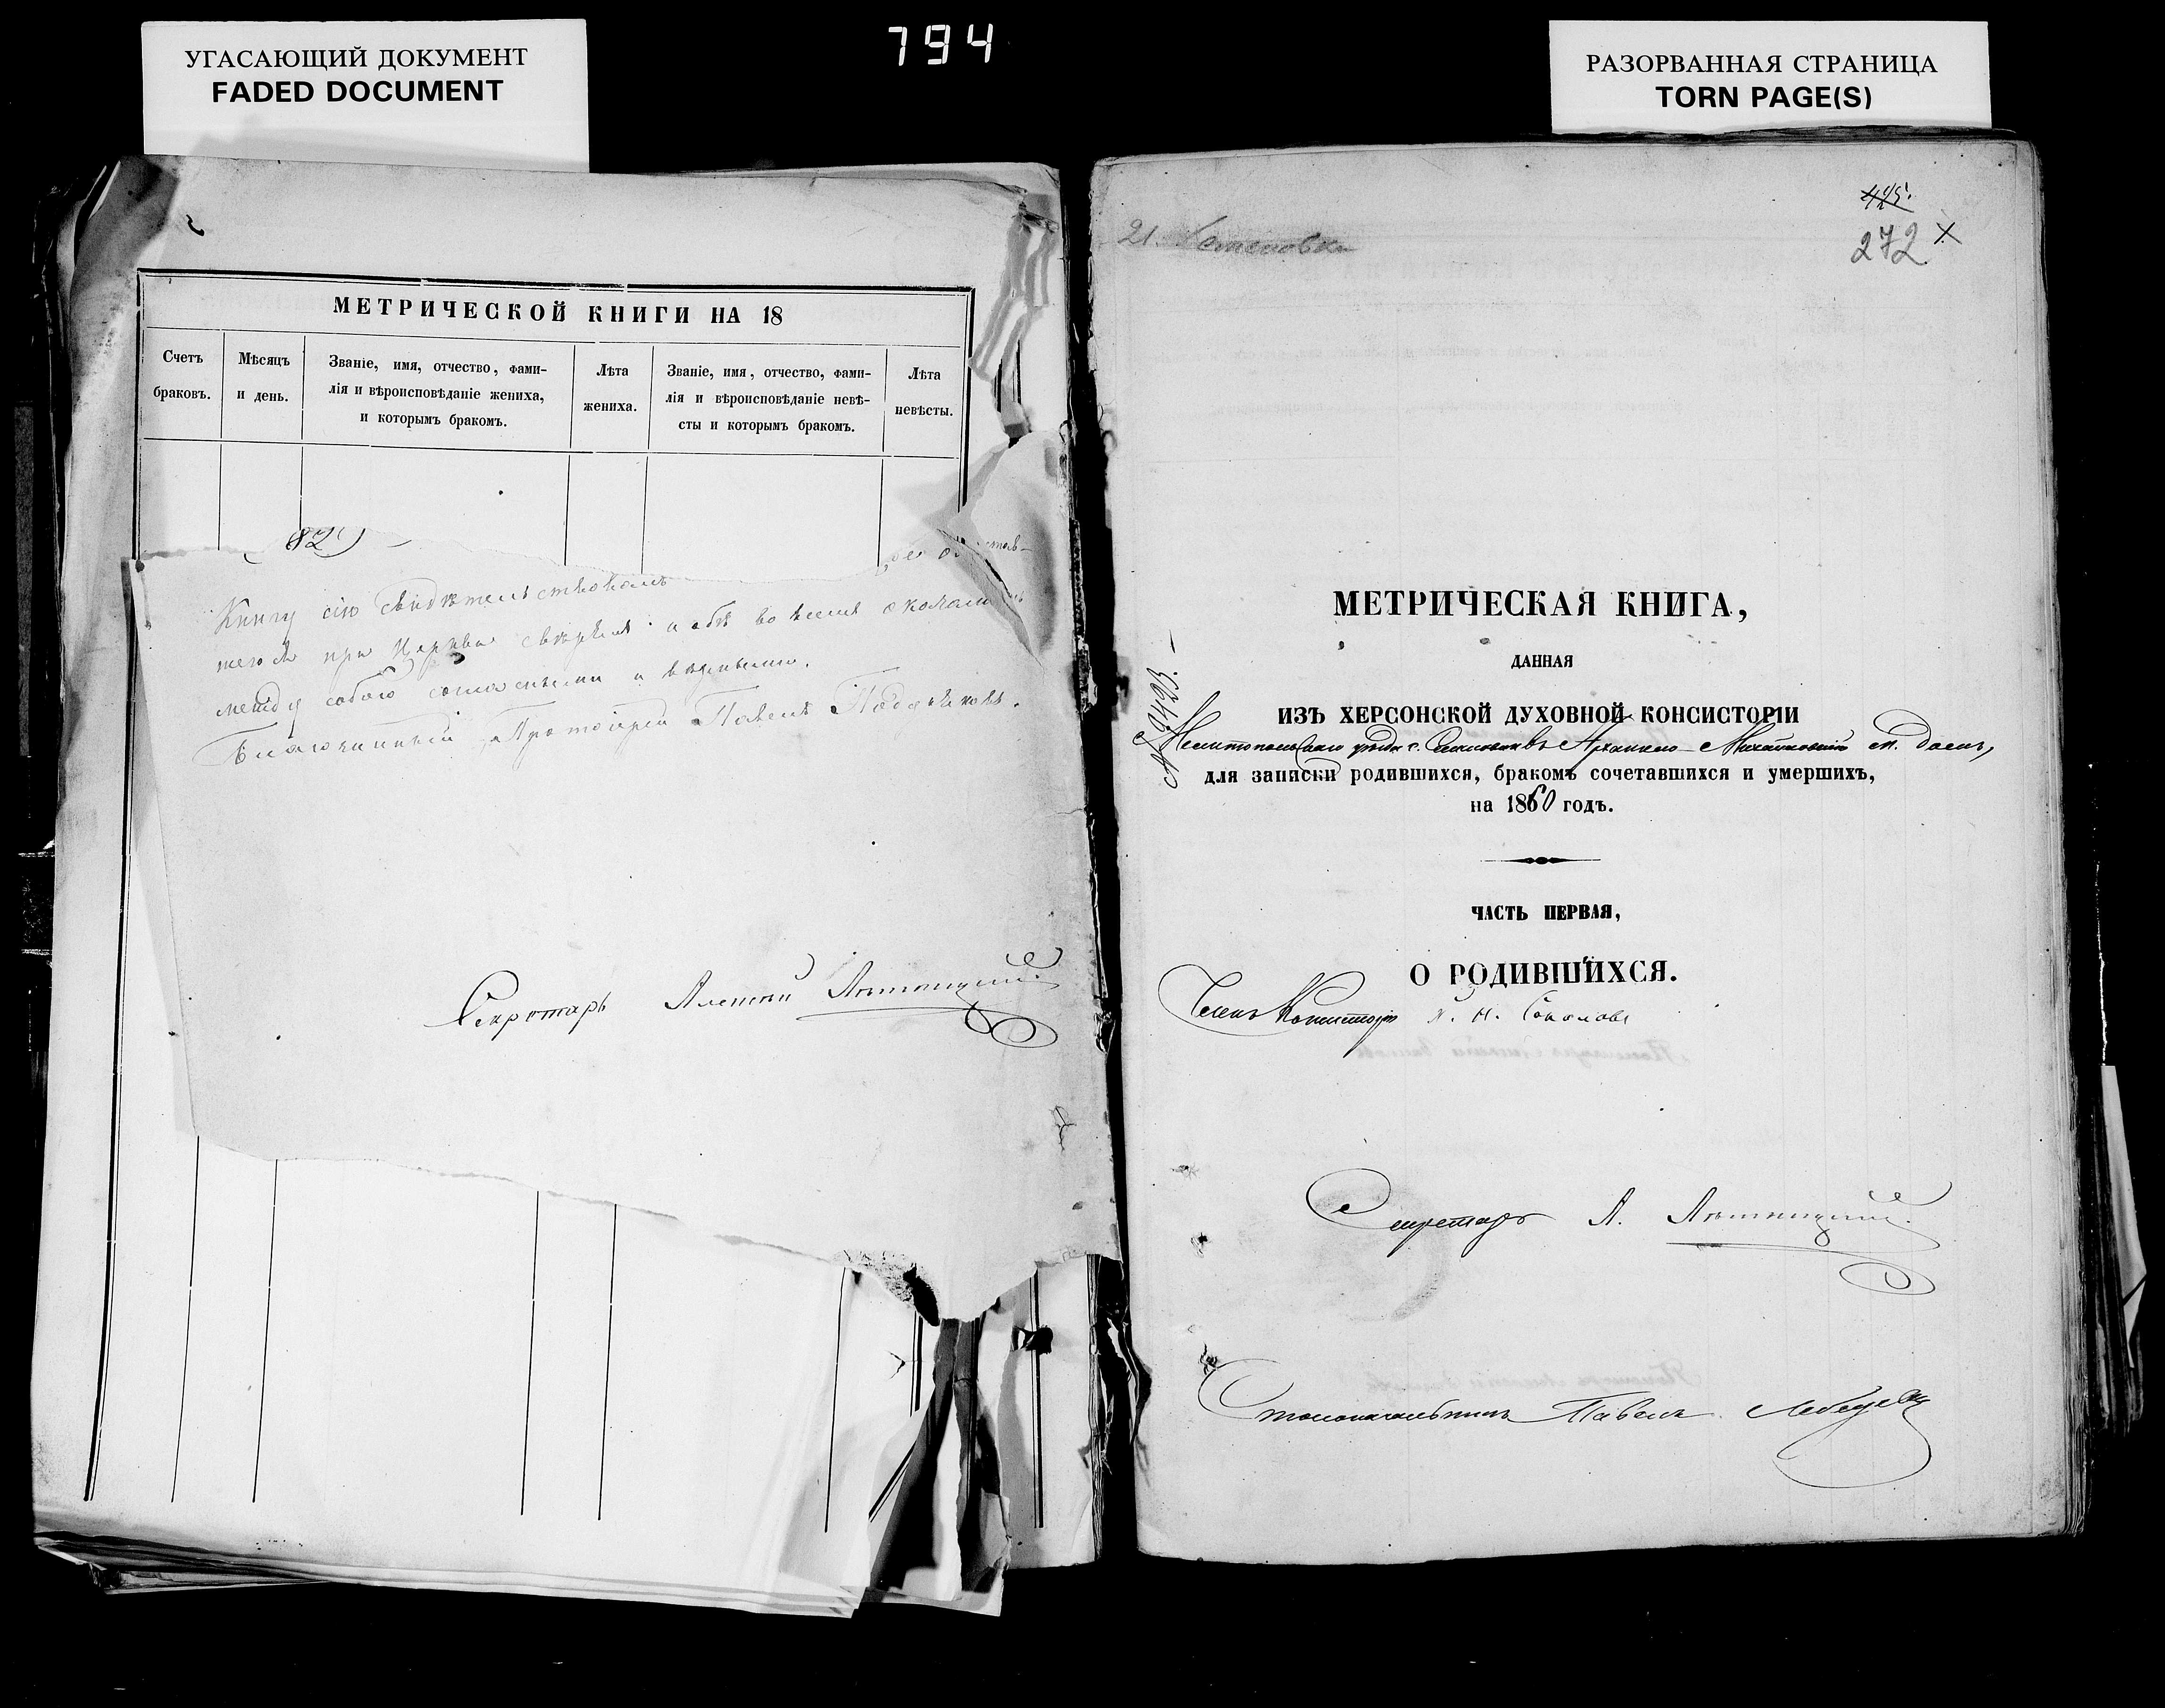 УГАСАЮЩИЙ ДОКУМЕНТ
FADED DOCUMENT
794
РАЗОРВАННАЯ СТРАНИЦА
TORN PAGE(S)
МЕТРИЧЕСКОЙ КНИГИ НА 18
Счетъ браковъ.
Мѣсяцъ и день.
Званіе, имя, отчество, фами-
лія и вѣроисповѣданіе жениха,
и которымъ бракомъ.
Лѣта жениха.
Званіе, имя, отчество, фами-
лія и вѣроисповѣданіе невѣ-
сты и которымъ бракомъ.
Лѣта невѣсты.
82)
Книгу сію свидѣтельствовалъ
при Церкви и обѣ во всемъ
между собою согласными и вѣрными.
Благочинный Протоіерей Павелъ
Секретарь Алексѣй
21. Семеновка
425.
272 X
МЕТРИЧЕСКАЯ КНИГА,
ДАННАЯ
ИЗЪ ХЕРСОНСКОЙ ДУХОВНОЙ КОНСИСТОРІИ
№ 9493.
Мелитопольскаго уѣзда с. Архангело-Михайловской
для записки родившихся, бракомъ сочетавшихся и умершихъ,
на 1860 годъ.
ЧАСТЬ ПЕРВАЯ,
О РОДИВШИХСЯ.
Членъ Консисторіи Соколовъ
Секретарь А.
Столоначальникъ Павелъ Лебедевъ